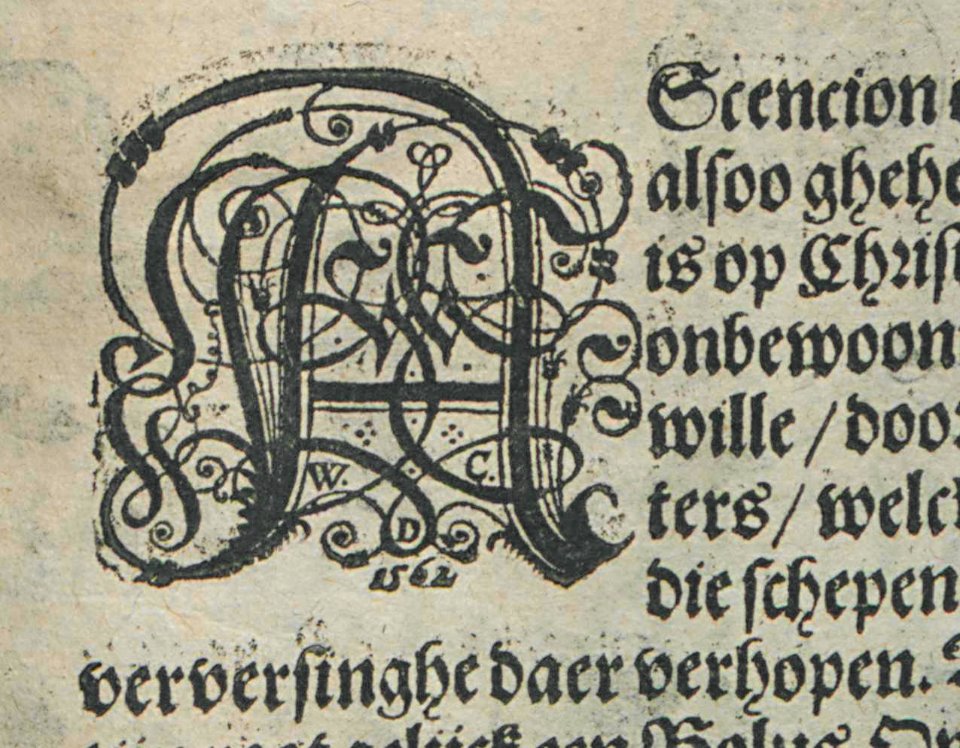 A
Scencion
alsoo ghehe
is op Christ
onbewoon
wille / door
W. C.
ters / welck
D
1562
die schepen
ververſinghe daer verhopen.